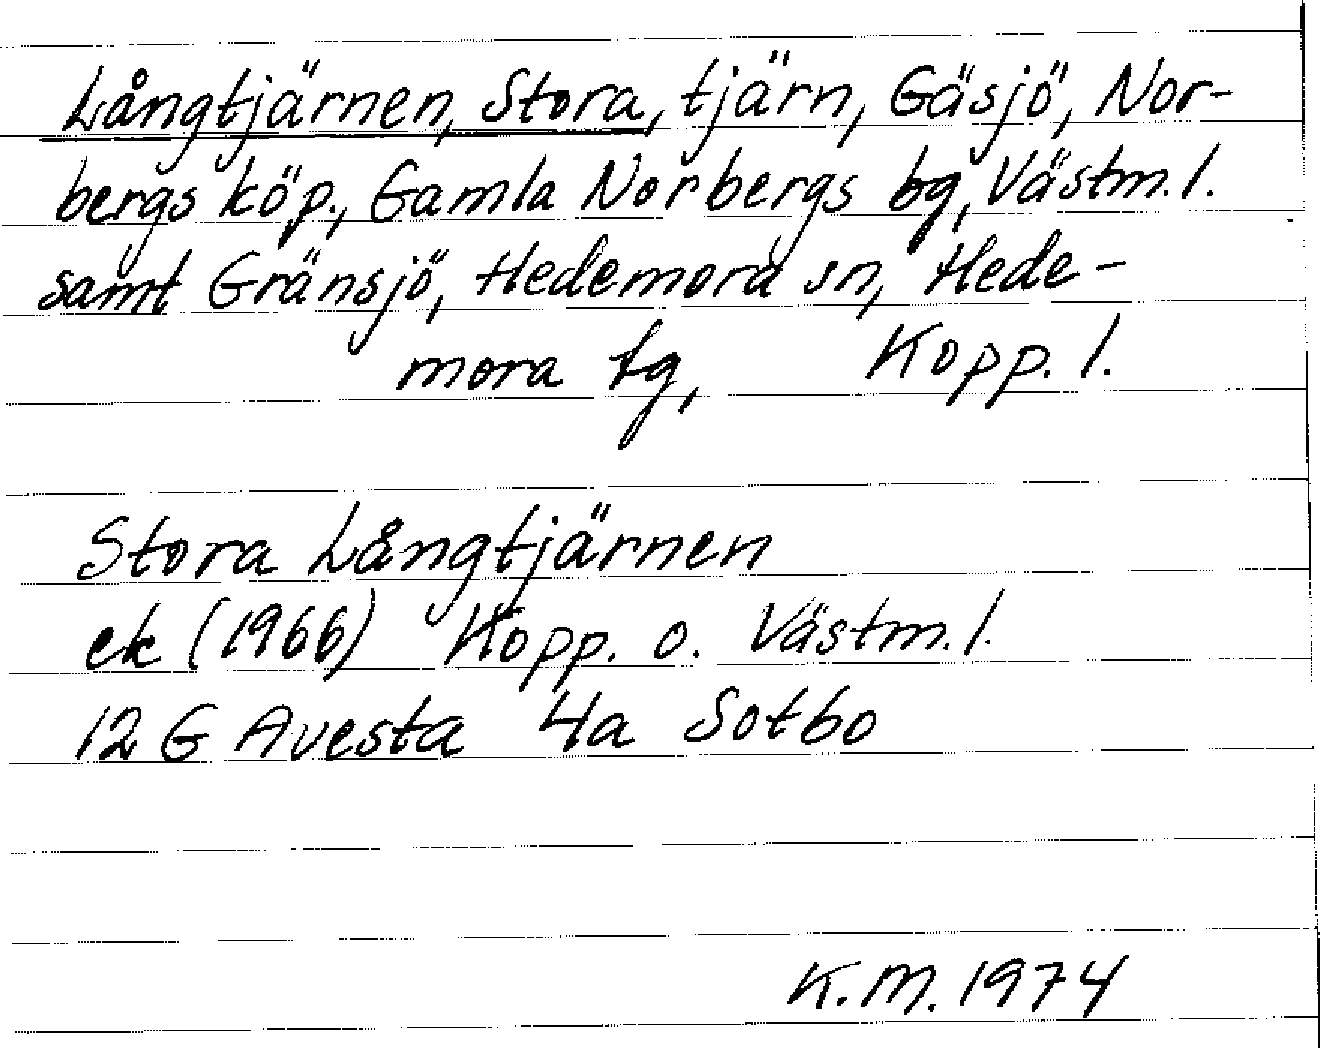 Långtjärnen, Stora, tjärn, Gäsjö, Nor-
bergs köp., Gamla Norbergs bg, Västm. l.
samt Gränsjö, Hedemora sn, Hede-
mora tg, Kopp. l.
Stora Långtjärnen
ek (1966) Kopp. o. Västm. l.
12 G Avesta 4a Sotbo
K.M. 1974